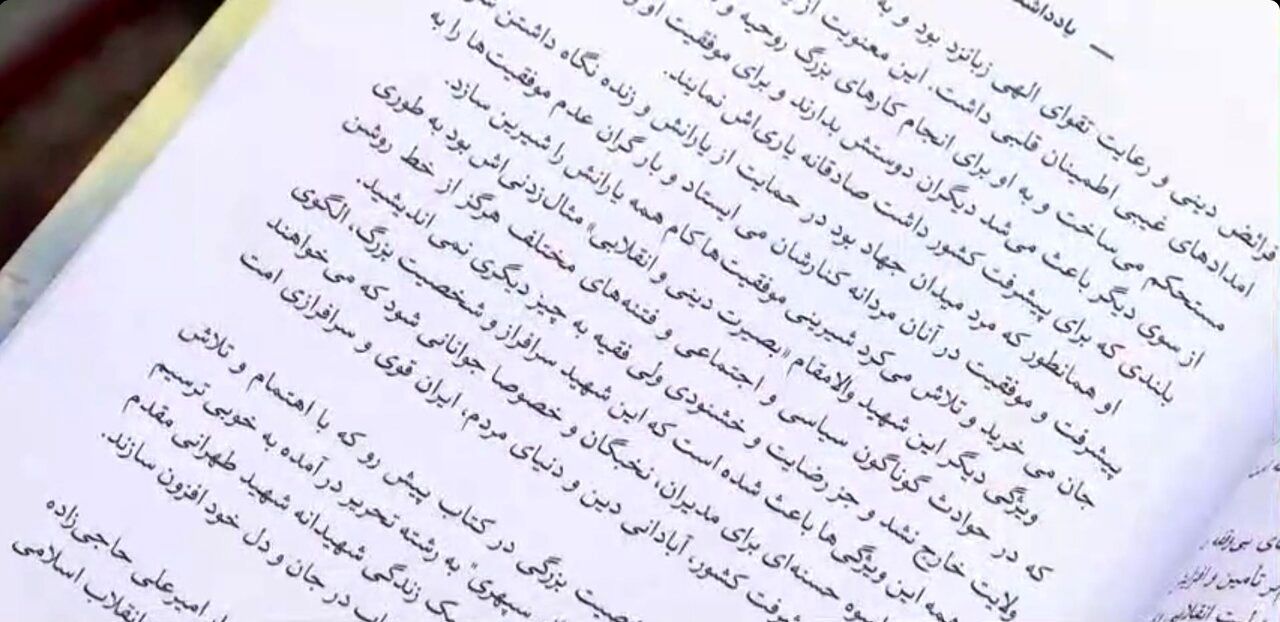 — یادداشت
فرائض دینی و رعایت تقوای الهی زبانزد بود و به
امدادهای غیبی اطمینان قلبی داشت. این معنویت از
مستحکم می‌ساخت و به او برای انجام کارهای بزرگ روحیه و
از سوی دیگر باعث می‌شد دیگران دوستش بدارند و برای موفقیت او
بلندی که برای پیشرفت کشور داشت صادقانه یاری‌اش نمایند.
او همانطور که مرد میدان جهاد بود در حمایت از یارانش و زنده نگاه داشتن
پیشرفت و موفقیت در آنان مردانه کنارشان می ایستاد و بار گران عدم موفقیت‌ها را به
جان می خرید و تلاش می‌کرد شیرینی موفقیت‌ها کام همه یارانش را شیرین سازد.
ویژگی دیگر این شهید والامقام "بصیرت دینی و انقلابی" مثال‌زدنی‌اش بود به طوری
که در حوادث گوناگون سیاسی و اجتماعی و فتنه‌های مختلف هرگز از خط روشن
ولایت خارج نشد و جز رضایت و خشنودی ولی فقیه به چیز دیگری نمی اندیشید.
همه این ویژگی‌ها باعث شده است که این شهید سرافراز و شخصیت بزرگ، الگوی
اسوه حسنه‌ای برای مدیران، نخبگان و خصوصا جوانانی شود که می‌خواهند
کشور، آبادانی دین و دنیای مردم، ایران قوی و سرافرازی امت
بزرگی در کتاب پیش رو که با اهتمام و تلاش
سپهری" به رشته تحریر در آمده به خوبی ترسیم
سبک زندگی شهیدانه شهید طهرانی مقدم
در جان و دل خود افزون سازند.
امیرعلی حاجی‌زاده
انقلاب اسلامی